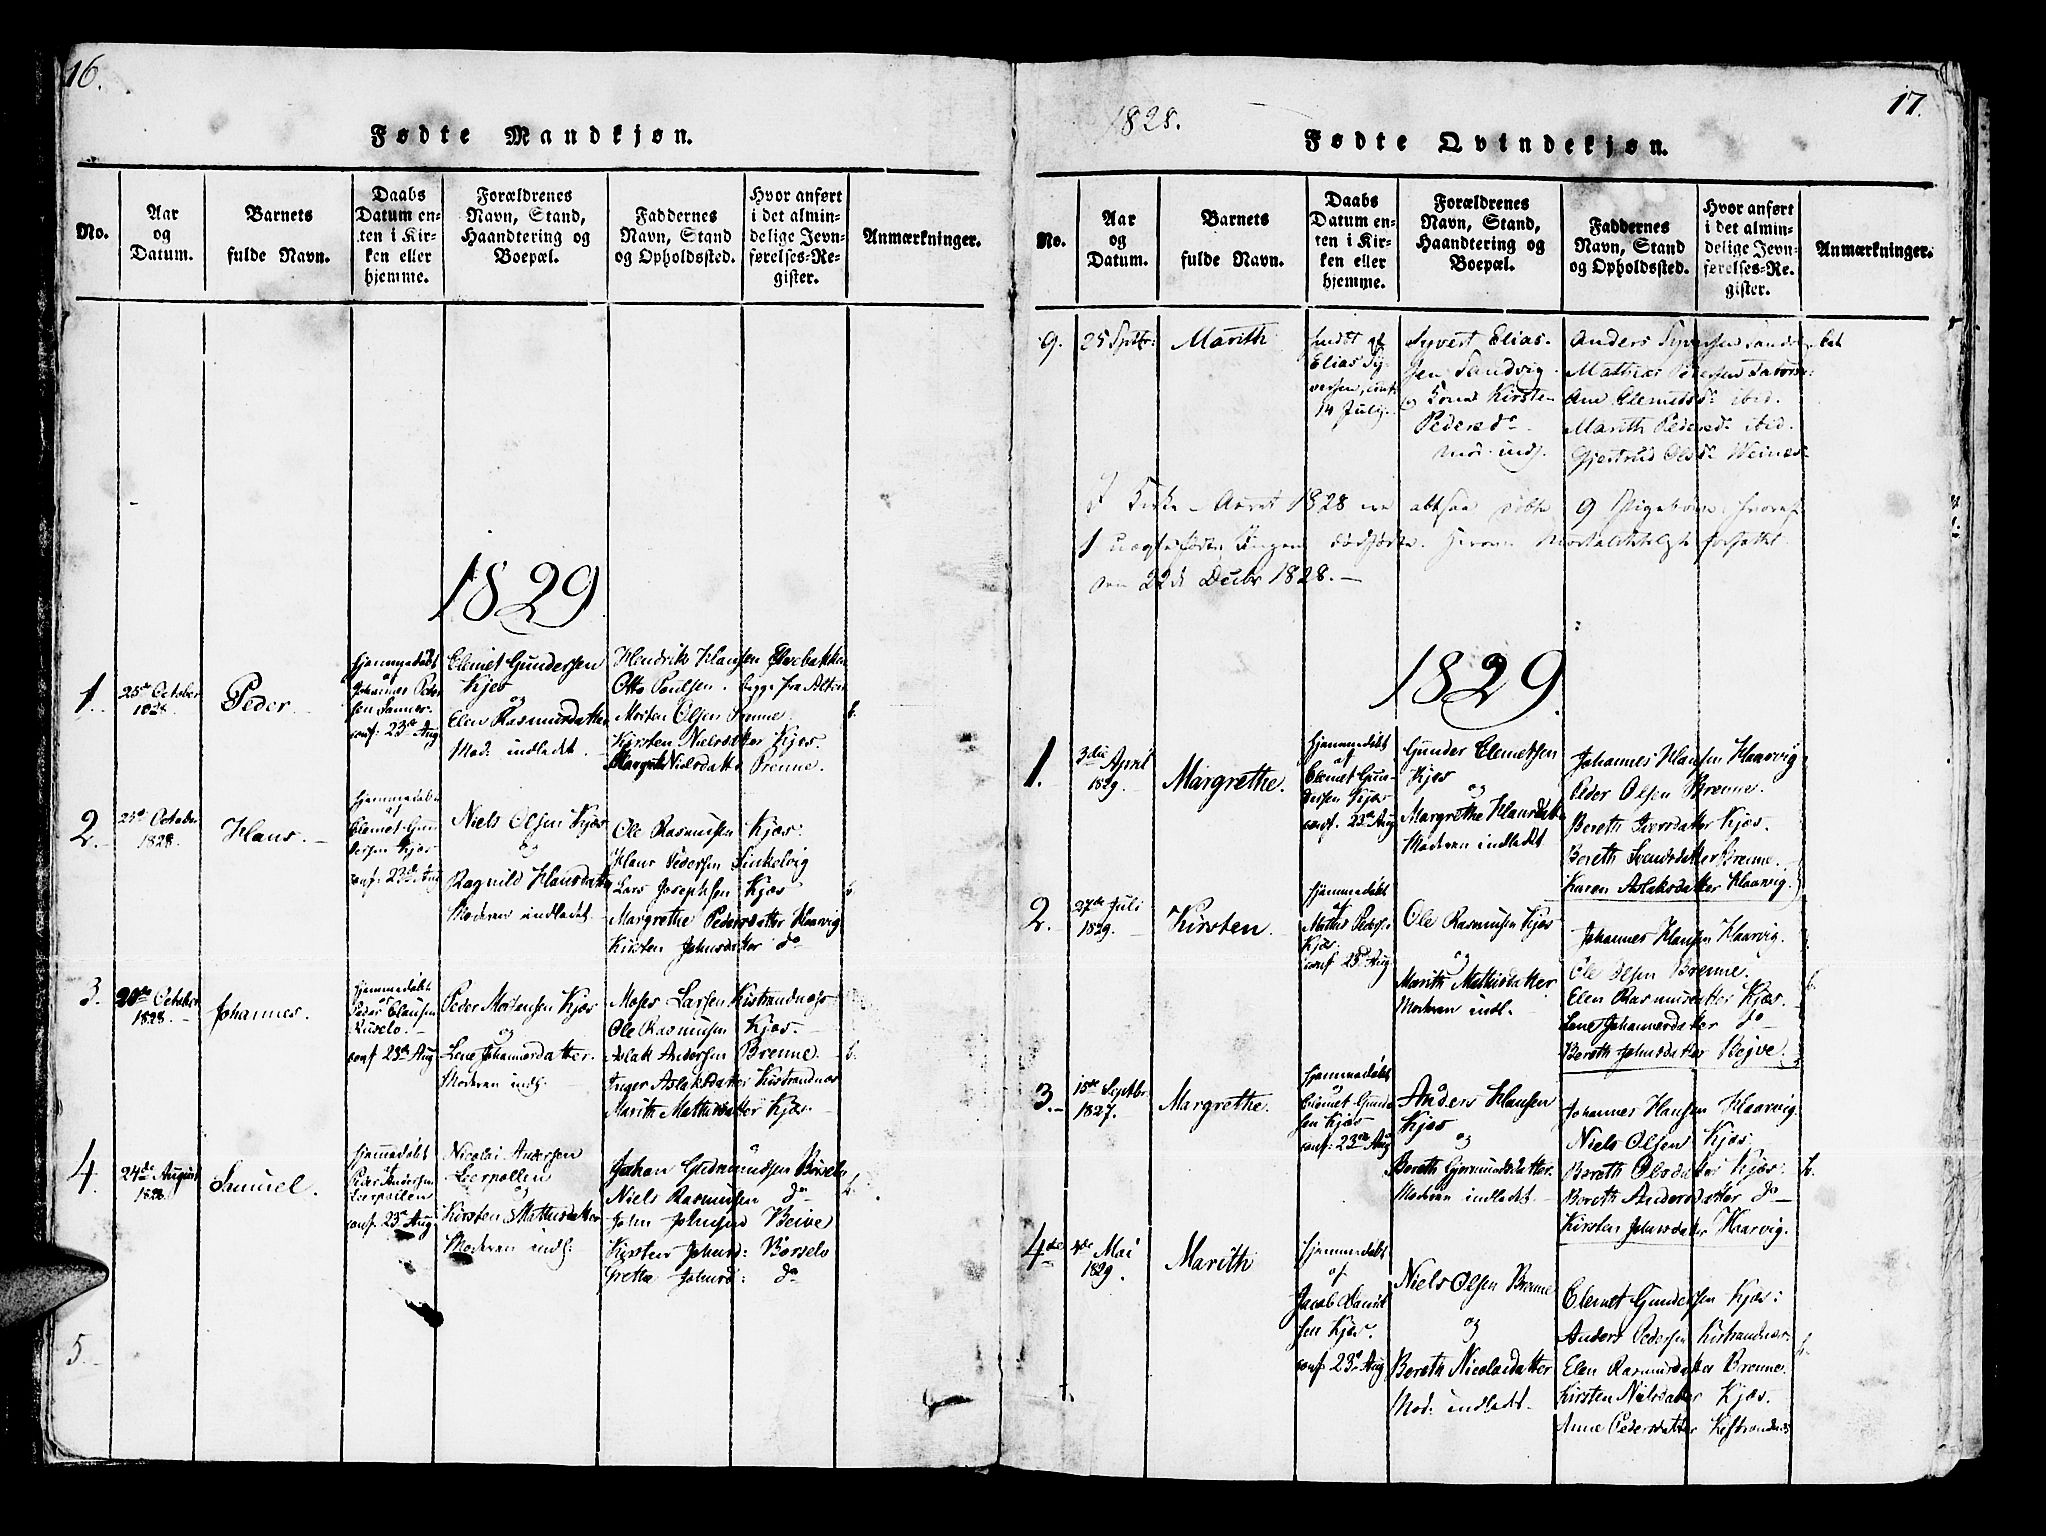 16.
Fødte Mandkjøn.
No.
Aar
og
Datum.
Barnets
fulde Navn.
Daabs
Datum en-
ten i Kir-
ken eller
hjemme.
Forældrenes
Navn, Stand,
Haandtering og
Boepæl.
Faddernes
Navn, Stand
og Opholdssted.
Hvor anført
i det almin-
delige Jevn-
førelses-Re-
gister.
Anmærkninger.
1829
1.
25de October
1828.
Peder
hjemmedøbt
af
Johannes Peder
sen
conf: 23de Aug
Clemet Gundersen
Kjæs
og
Elen Rasmusdatter
Mod: indladet.
Hendrik Hansen Elvebakken
Otto Poulsen. begge fra Alten
Morten Olsen Brenne.
Kirsten Nielsdatter Kjæs.
Margrete Nielsdatter Brenne.
b.
2.
October
1828.
Hans.
hjemmedøbt
af
Clemet Gun
dersen Kjæs
conf. 23de Aug
Niels Olsen Kjæs
og
Ragnild Hansdatter
Moderen indladet.
Ole Rasmussen Kjæs.
Hans Pedersen Sinkelvig
Lars Josephsen Kjæs
Margrethe Pedersdatter Haarvig
Kirsten Johnsdatter do
b.
3.
20de October
1828.
Johannes.
hjemmedøbt
af
Peder Clausen
conf 23de Aug
Peder Mortensen Kjæs
og
Lene Johannesdatter.
Moderen indl:
Moses Larsen Kistrandnæss
Ole Rasmusen Kjæs.
Aslak Andersen Brenne.
Inger Aslaksdatter Kistrandnæs
Marith Mathisdatter Kjæs
b.
4.
24de August
1828.
Samuel.
hjemmedøbt
Peder Andersen
Leerpollen
conf. 23de Aug
Nicolai Andersen
Leerpollen
og
Kirsten Mathisdatter
Moderen indl:
Johan Gudmundsen Børselv
Niels Rasmusen do
John Johnsen Beive
Kirsten Johnsd: Børselv
Grethe Johnsd: do
b.
5.
17.
1828.
Fødte Qvindekjøn.
No.
Aar
og
Datum.
Barnets
fulde Navn.
Daabs
Datum en-
ten i Kir-
ken eller
hjemme.
Forældrenes
Navn, Stand,
Haandtering og
Boepæl.
Faddernes
Navn, Stand
og Opholdssted.
Hvor anført
i det almin-
delige Jevn-
førelses-Re-
gister.
Anmærkninger.
9.
25 Septbr:
Marith
Elias Sy-
versen, conf.
14 Julij.
Syvert Elias-
sen Sandvig
og Kone Kirsten
Pedersdr
Mod. indl.
Anders Syversen Sandv.
Mathias Pedersen
Ane Clemetsdr ibid.
Marith Pedersdr ibid.
Gjertrud Olsdr
bet
I Kirke-Aaret 1828 ere altsaa døbte 9 Pigebørn, hvoraf
1 uægtefødt. Ingen dødfødte. Herover Mortalitetsliste forfattet
den 22de Decbr 1828.
1829
1.
3die April
1829.
Margrethe.
hjemmedøbt
af
Clemet Gun-
dersen Kjæs
conf. 23de Aug
Gunder Clemetsen
Kjæs
og
Margrethe Hansdatt
Moderen indladet
Johannes Hansen Haarvig
Peder Olsen Brenne.
Bereth Iversdatter Kjæs.
Bereth Svendsdatter Brenne.
Karen Aslaksdatter Haarvig.
2.
27de Juli
1829.
Kirsten
hjemmedøbt
af
Mathis Peders:
Kjæs.
conf 23de Aug
Ole Rasmusen Kjæs
og
Marith Mathisdatter
Moderen indl.
Johannes Hansen Haarvig.
Ole Olsen Brenne.
Elen Rasmusdatter Kjæs.
Lene Johannesdatter do
Bereth Johnsdatter Beive.
b.
3.
15de Septbr
1827.
Margrethe.
hjemmedøbt
af
Clemet Gunder
sen Kjæs
conf: 23de Aug
Anders Hansen
Kjæs
og
Bereth Gjermundsdatter.
Moderen indladet
Johannes Hansen Haarvig.
Niels Olsen Kjæs.
Bereth Olsdatter Kjæs.
Bereth Andersdatter do
Kirsten Johnsdatter Haarvig.
b.
4de
4de Mai
1829.
Marith
hjemmedøbt
af
Jacob Daniel
sen Kjæs.
conf. 23de Aug
Niels Olsen Brenne
og
Bereth Nicolaidatter
Mod: indladet.
Clemet Gundersen Kjæs:
Anders Pedersen Kistrandnæs.
Elen Rasmusdatter Brenne.
Kirsten Nielsdatter Kjæs.
Anne Pedersdatter Kistrandnæs
b.